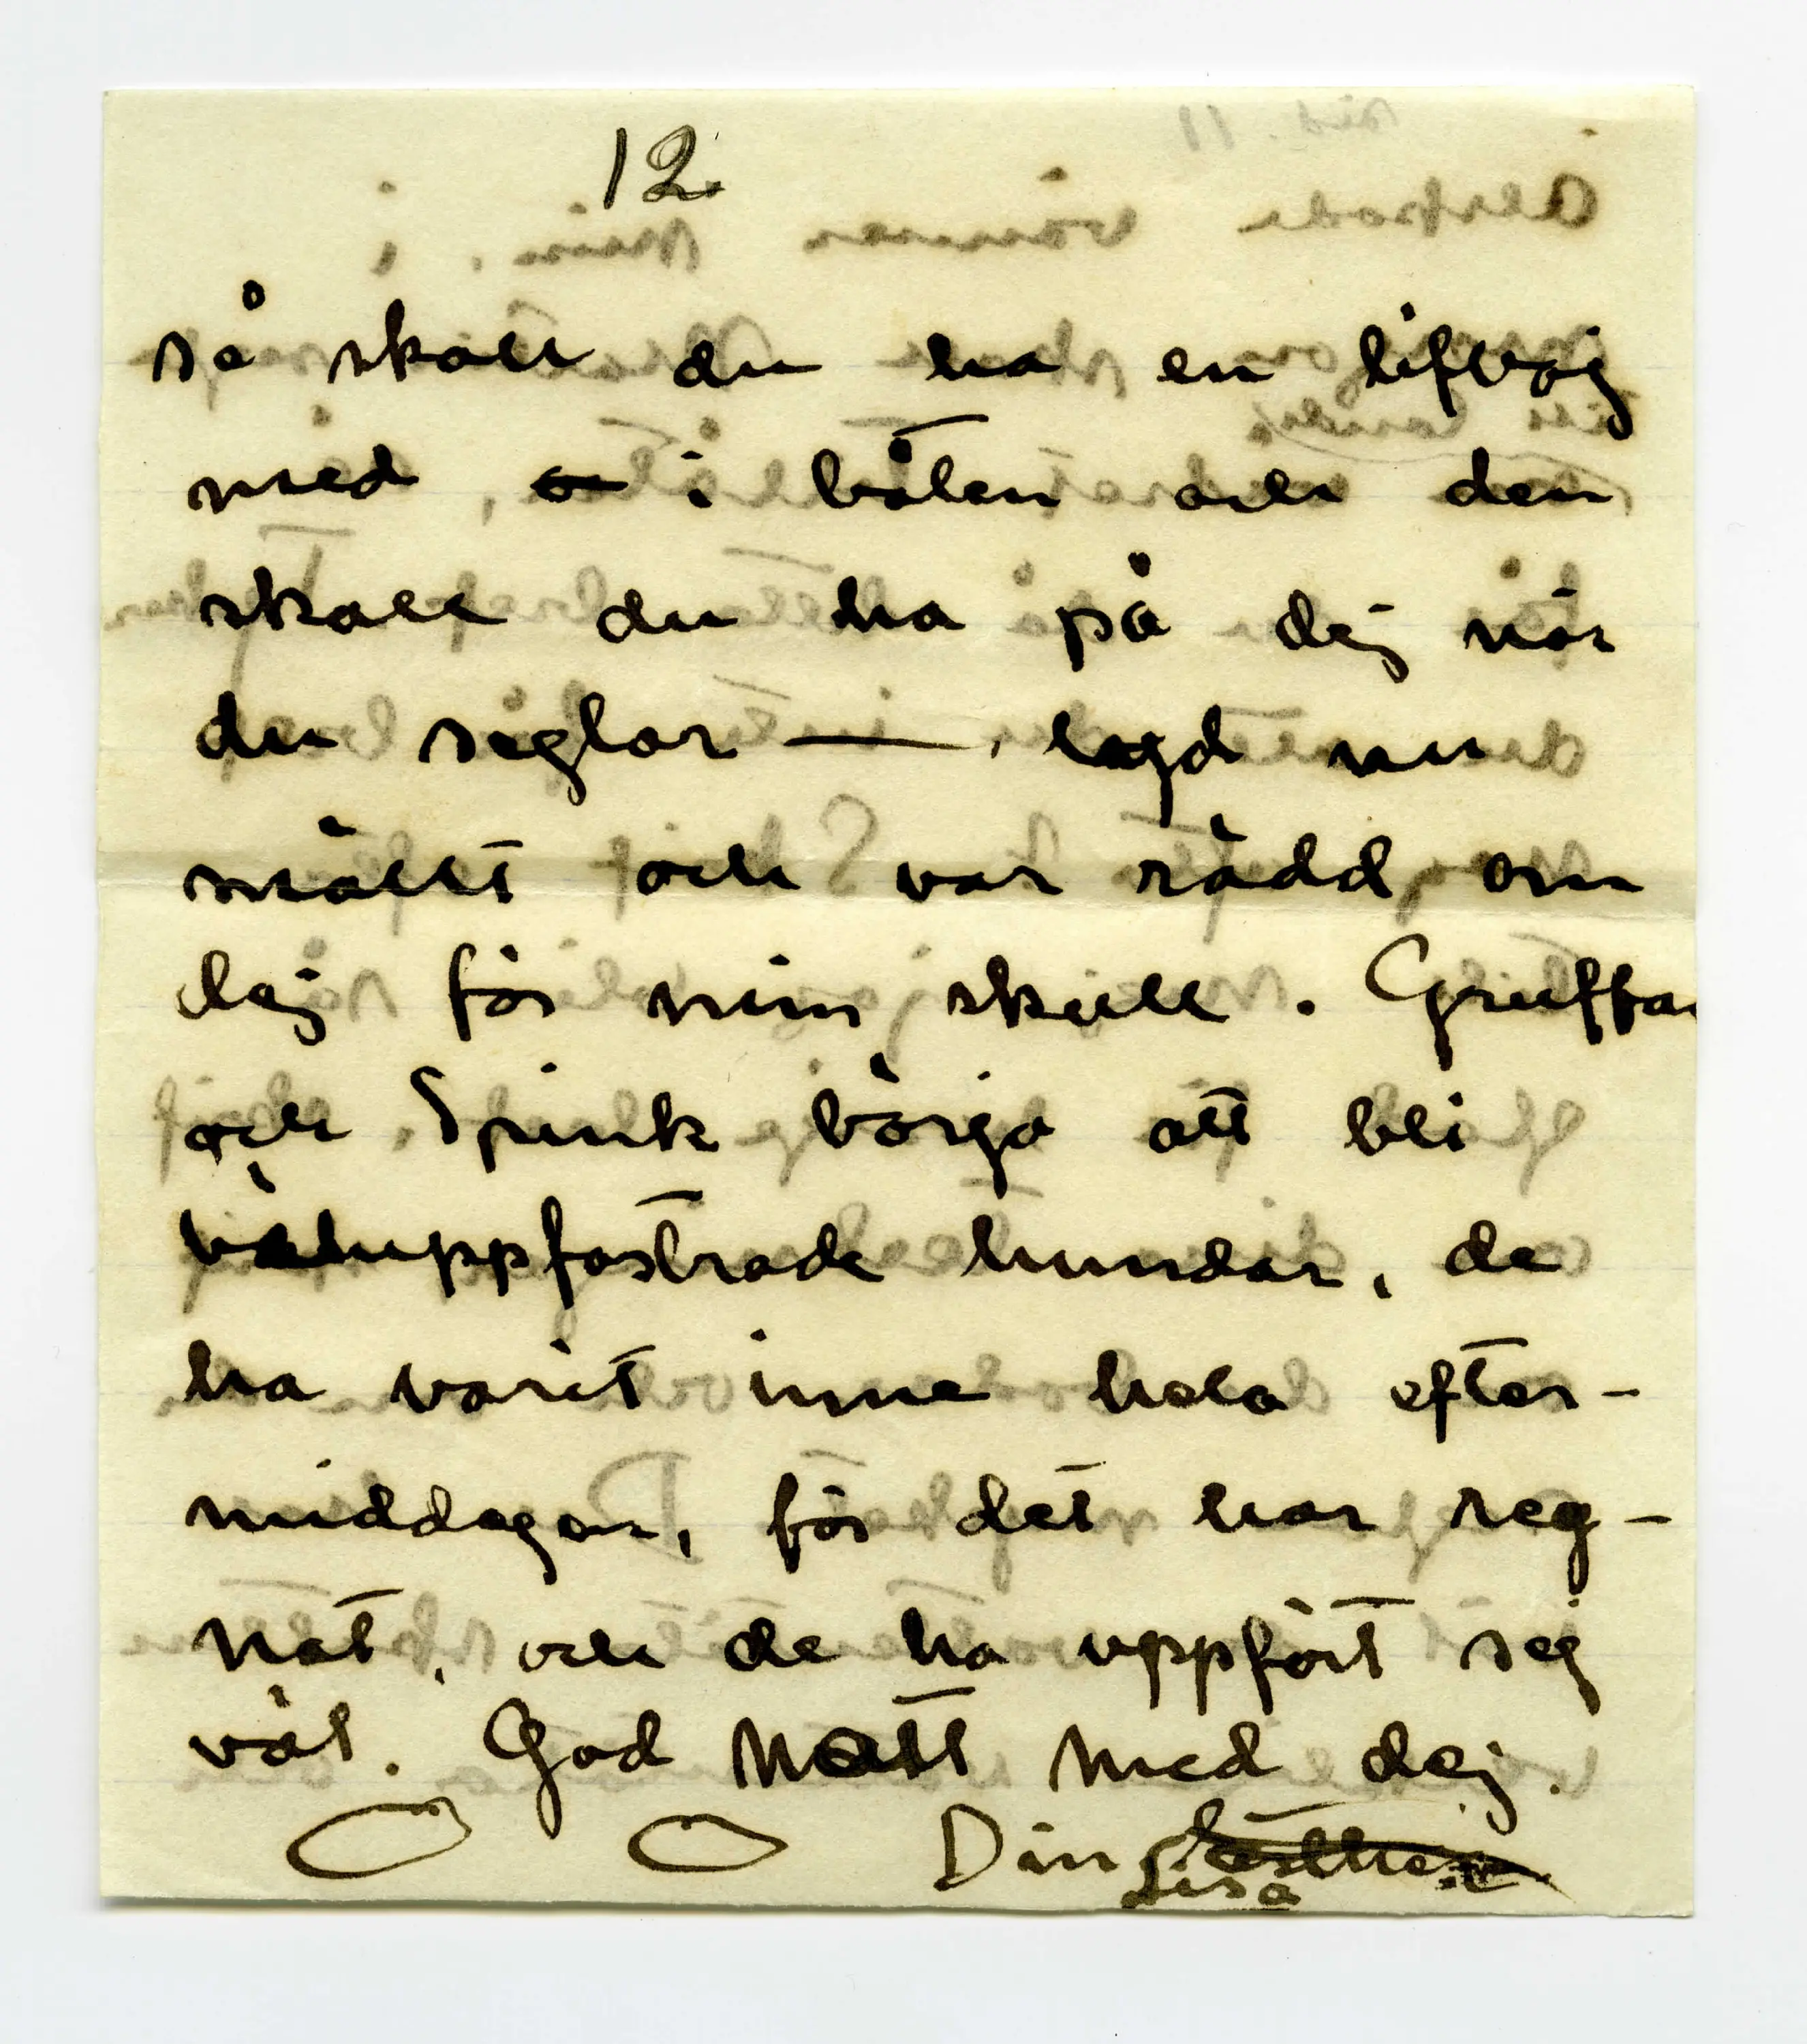 12
så skall du ha en lifväg
med, i båten och den
skall du ha på dej när
du seglar — , lyd nu
mitt och var rädd om
dej för min skull. Gruffa
och Spink börja att bli
väluppfostrade hundar, de
ha varit inne hela efter-
middagen, för det har reg-
nat, och de ha uppfört sej
väl. God Natt med dej.
Din Lisa